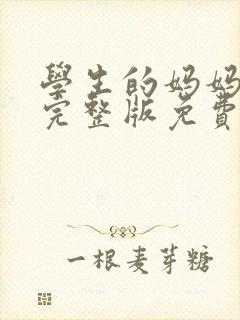 學生的妈妈
完整版免費
一根麦芽糖